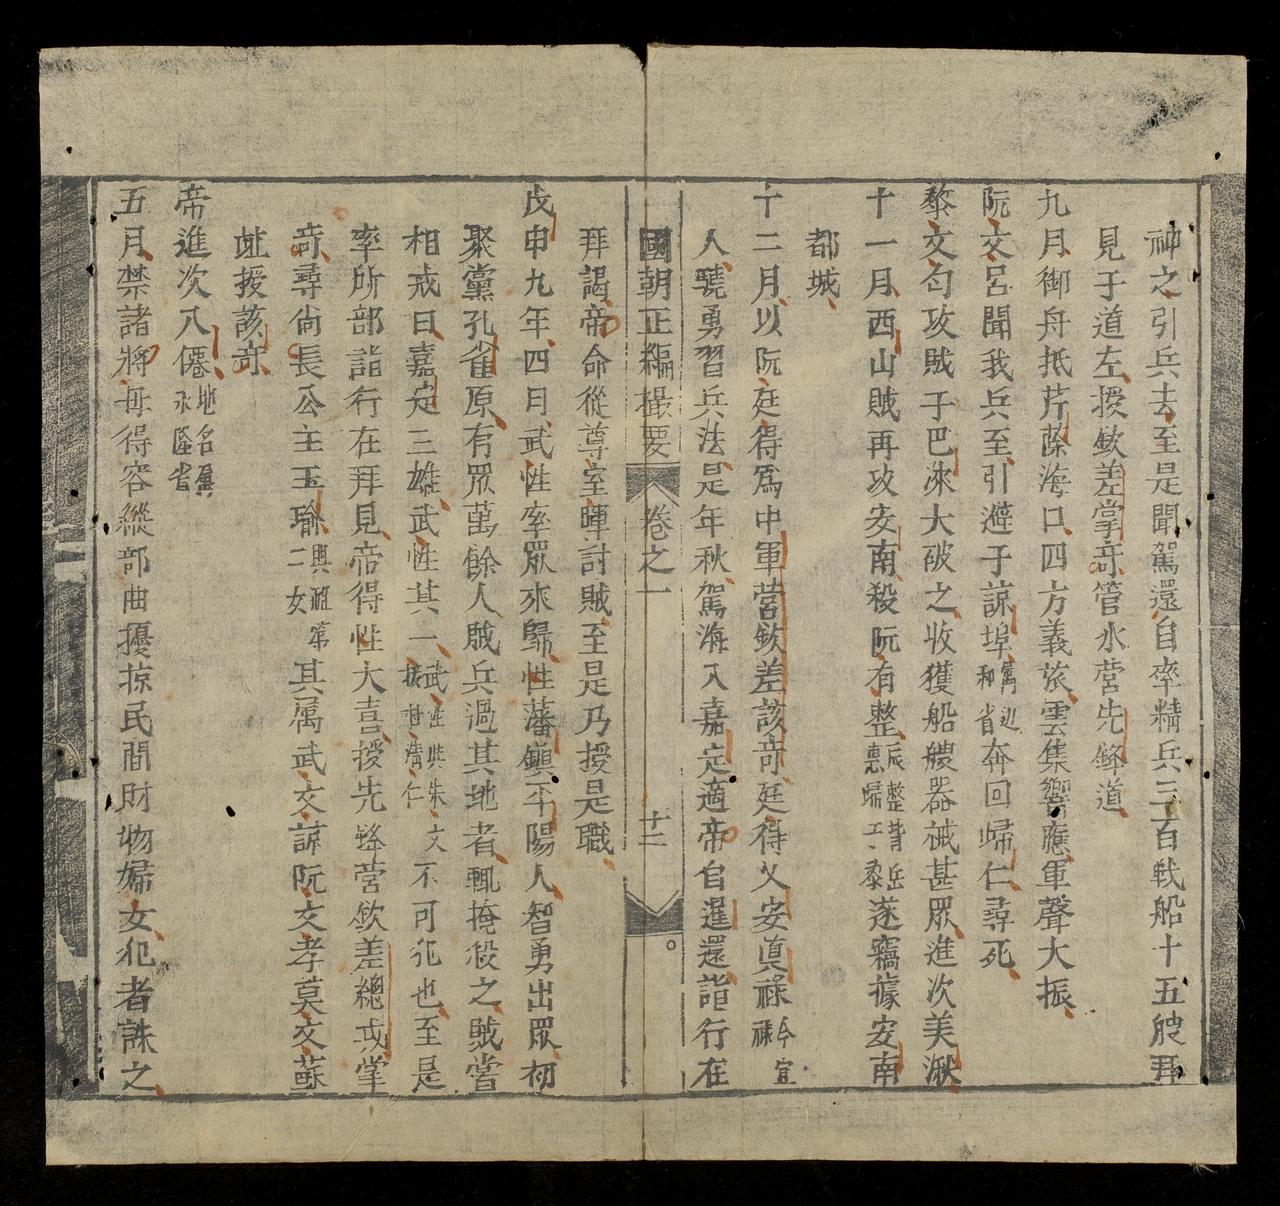 神之引兵去至是聞駕還自率精兵三百戰船十五艘拜
見于道左授欽差掌奇管水營先鋒道
九月御舟抵芹蒢海口四方義旅雲集響應軍聲大振
阮文呂聞我兵至引避于諒埠屬邊和省奔回歸仁尋死
黎文勻攻賊于巴淶大破之收獲船艘器械甚眾進次美湫
十一月西山賊再攻安南殺阮有整整背岳惠歸黎遂竊據安南
都城
十二月以阮庭得為中軍營欽差該奇庭得父安眞祿今宜祿
人驍勇習兵法是年秋駕海入嘉定適帝自暹還詣行在
國朝正編撮要 卷之一 十二
拜謁帝命從尊室暉討賊至是乃授是職
戊申九年四月武性率眾來歸性藩鎮平陽人智勇出眾初
聚黨孔雀原有眾萬餘人賊兵過其地者輒掩殺之賊嘗
相戒曰嘉定三雄武性其一武性與朱文接甘濟仁不可犯也至是
率所部詣行在拜見帝得性大喜授先鋒營欽差總戎掌
奇尋尚長公主玉瑜興祖第二女其屬武文諒阮文孝莫文蘇
並授該奇
帝進次八僊地名屬永隆省
五月禁諸將毋得容縱部曲擾掠民間財物婦女犯者誅之